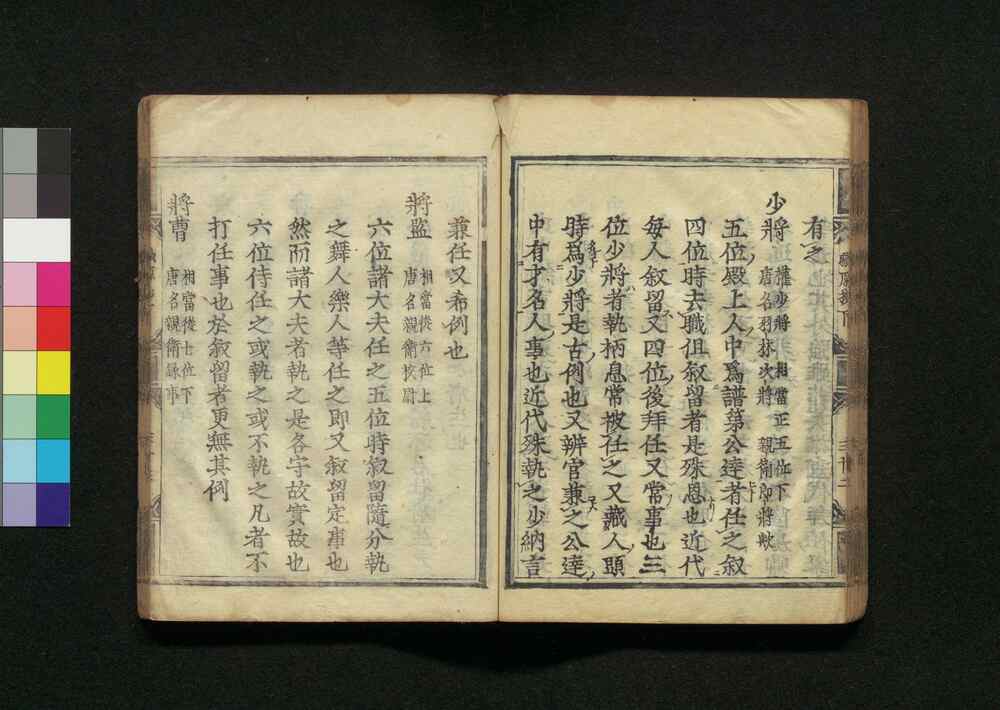 有之
少將 權少將 相當正五位下
唐名羽林次將 親衛郎將歟
五位殿上人中爲譜第公達者任之叙
四位時去職但叙留者是殊恩也近代
每人叙留又四位後拜任又常事也三
位少將者執柄息常被任之又藏人頭
時爲少將是古例也又辨官兼之公達
中有才名人事也近代殊執之少納言
兼任又希例也
將監 相當從六位上
唐名親衛校尉
六位諸大夫任之五位時叙留隨分執
之舞人樂人等任之即又叙留定事也
然而諸大夫者執之是各守故實故也
六位侍任之或執之或不執之凡者不
打任事也於叙留者更無其例
將曹 相當從七位下
唐名親衛錄事